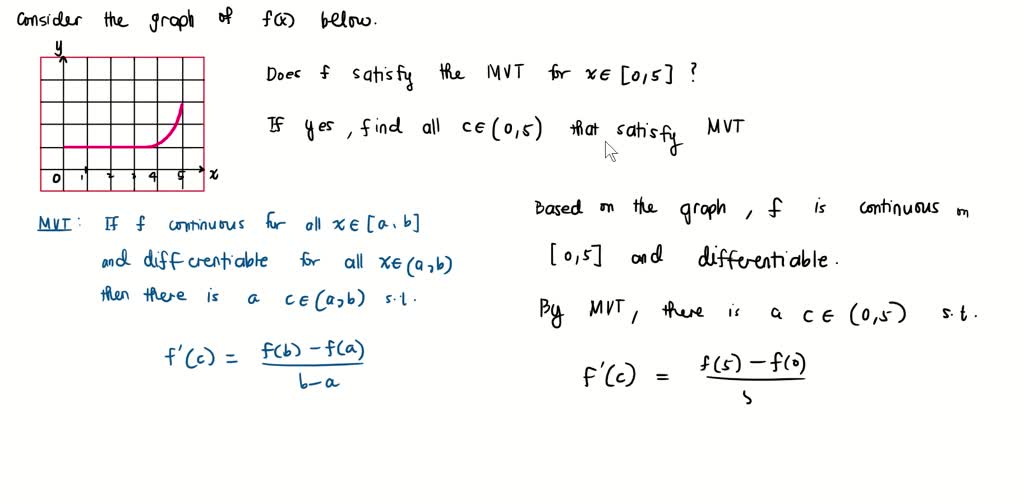 Consider the graph of f(x) below.
y
0 1 2 3 4 5 x
Does f satisfy the MVT for x∈[0,5] ?
If yes, find all c∈(0,5) that satisfy MVT
MVT: If f continuous for all x∈[a,b]
and differentiable for all x∈(a,b)
then there is a c∈(a,b) s.t.
f'(c) = f(b) - f(a) / b-a
Based on the graph, f is continuous on
[0,5] and differentiable.
By MVT, there is a c∈(0,5) s.t.
f'(c) = f(5) - f(0) / 5